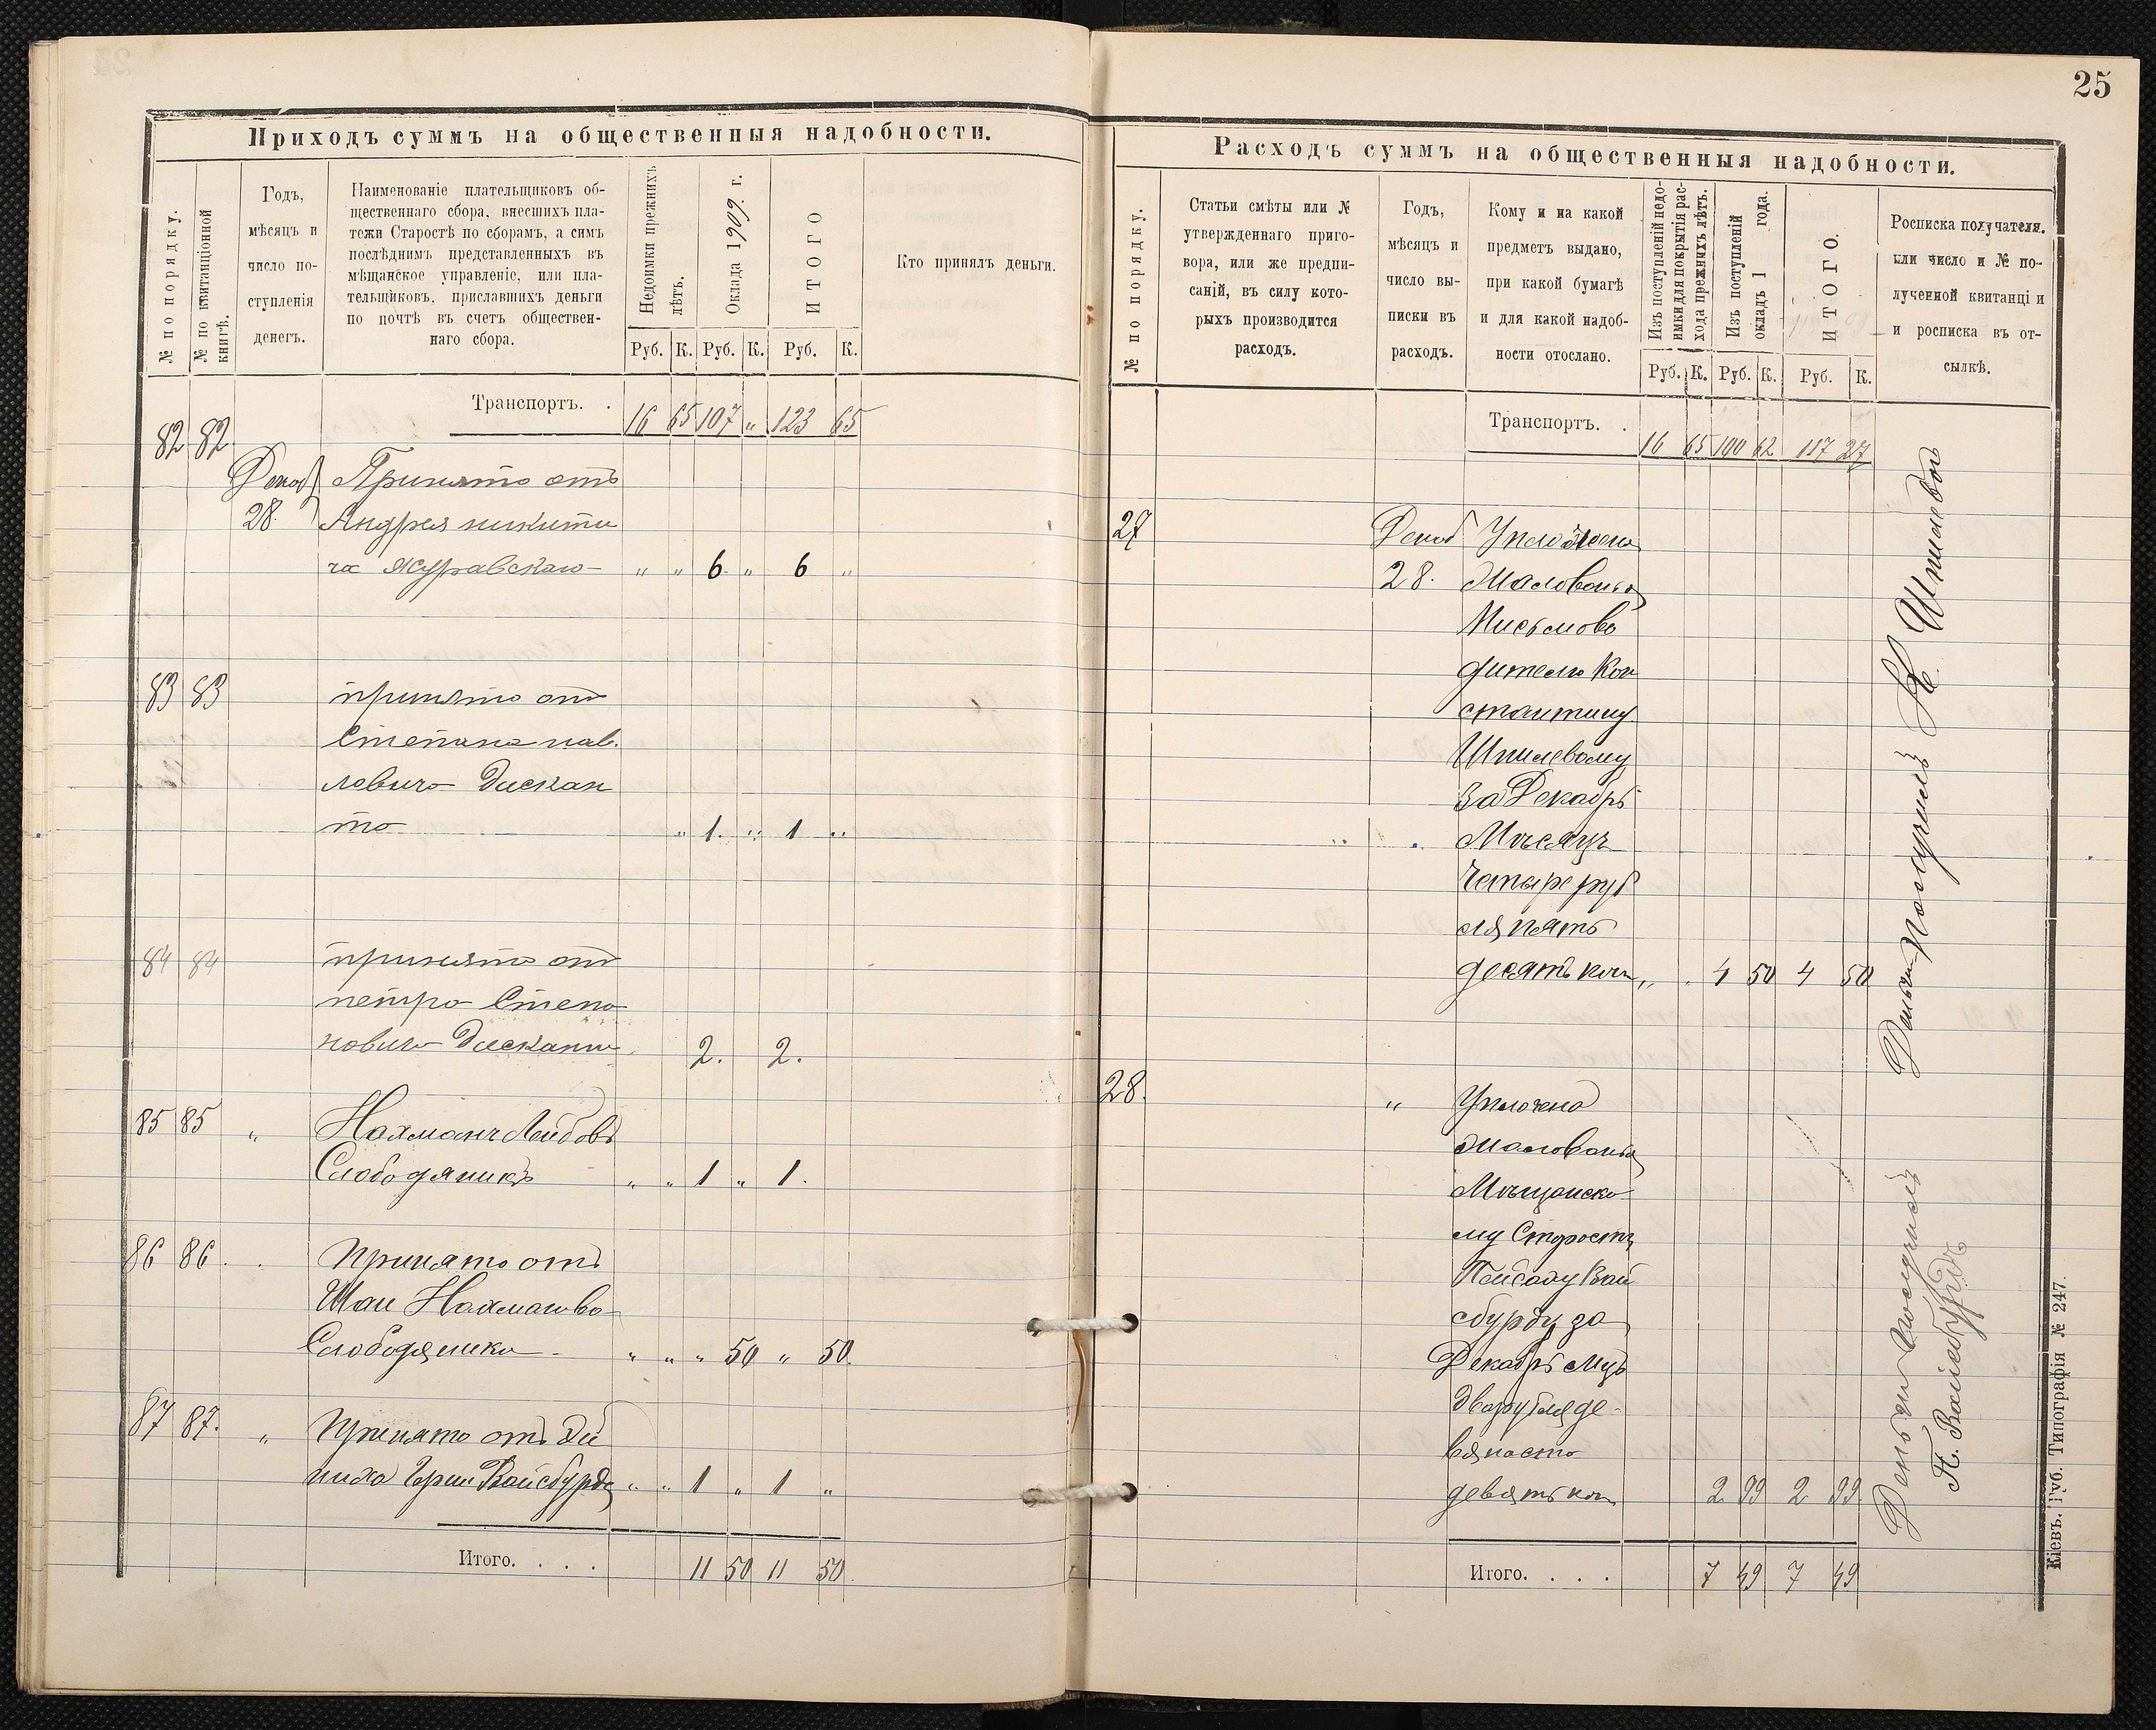 25
Приходъ суммъ на общественныя надобности.
№ по порядку.
№ по квитанціонной
книгѣ.
Годъ,
мѣсяцъ и
число по-
ступленія
денегъ.
Наименованіе плательщиковъ об-
щественнаго сбора, внесшихъ пла-
тежи Старостѣ по сборамъ, а симъ
послѣднимъ представленныхъ въ
мѣщанское управленіе, или пла-
тельщиковъ, приславшихъ деньги
по почтѣ въ счетъ обществен-
наго сбора.
Недоимки прежнихъ
лѣтъ.
Оклада 1909. г.
ИТОГО
Кто принялъ деньги.
Руб. К. Руб. К. Руб. К.
Транспортъ. . 16 65 107 „ 123 65
82 82
Декаб Принято отъ
28. Андрея никити
ча Журавскаго - „ „ 6 „ 6 „
83 83 принято отъ
Степана пав.
ловича Дискан
та „ 1. „ 1 „
84 84 принято от
петра Степа
новича Дисканта 2. 2.
85 85 „ Нахманъ Лейбовъ
Слободяникъ „ „ 1 „ 1.
86 86. Принято отъ
Шаи Нахманова
Слободяника - „ „ „ 50 „ 50.
87 87. „ Принято отъ
Вайсбурда „ „ 1 „ 1 „
Итого. . . . 11 50 11 50.
Расходъ суммъ на общественныя надобности.
№ по порядку.
Статьи смѣты или №
утвержденнаго приго-
вора, или же предпи-
саній, въ силу кото-
рыхъ производится
расходъ.
Годъ,
мѣсяцъ и
число вы-
писки въ
расходъ.
Кому и на какой
предметъ выдано,
при какой бумагѣ
и для какой надоб-
ности отослано.
Изъ поступленій недо-
имки для покрытія рас-
хода прежнихъ лѣтъ.
Изъ поступленій
окладъ 1 года.
ИТОГО.
Росписка получателя.
или число и № по-
лученной квитанціи
и росписка въ от-
сылкѣ.
Руб. К. Руб. К. Руб. К.
Транспортъ. . 16 65 100 62 117 27
27 Декаб Уплочено
28. Жалованья
Письмово
дителю Кон
стантину
Шпилевому
за Декабрь
Мѣсяцъ
Четыре руб
ля пять
десятъ коп „ „ 4 50 4 50
Деньги Получилъ К. Шпилевой
28. „ Уплочено
Жалованья
Мѣщанско
му Старостѣ
Пейсаху Вай
сбурду за
Декабрь Мцъ
Два рубля де-
вяносто
девять коп 2 99 2 99.
Деньги получилъ
П. Вайсбурдъ
Итого. . . . 7 49 7 49
Кіевъ. Губ. Типографія № 247.